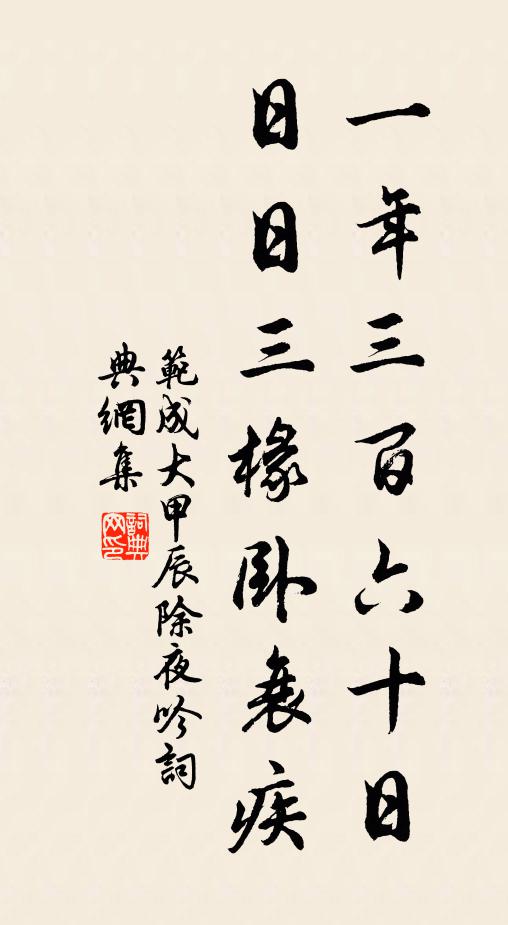 一年三百六十日
日日三椽臥衰疾
範成大甲辰除夜吟詞
典網集
詞典網印